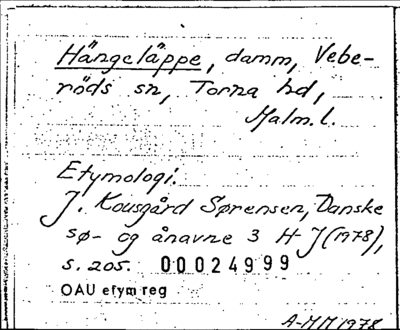 Hängeläppe, damm, Vebe-
röds sn, Torna hd,
Malm. l.
Etymologi.
J. Kousgård Sørensen, Danske
sø- og ånavne 3 H-J (1978),
s. 205. 00024999
OAU etym reg
A-MM 1978